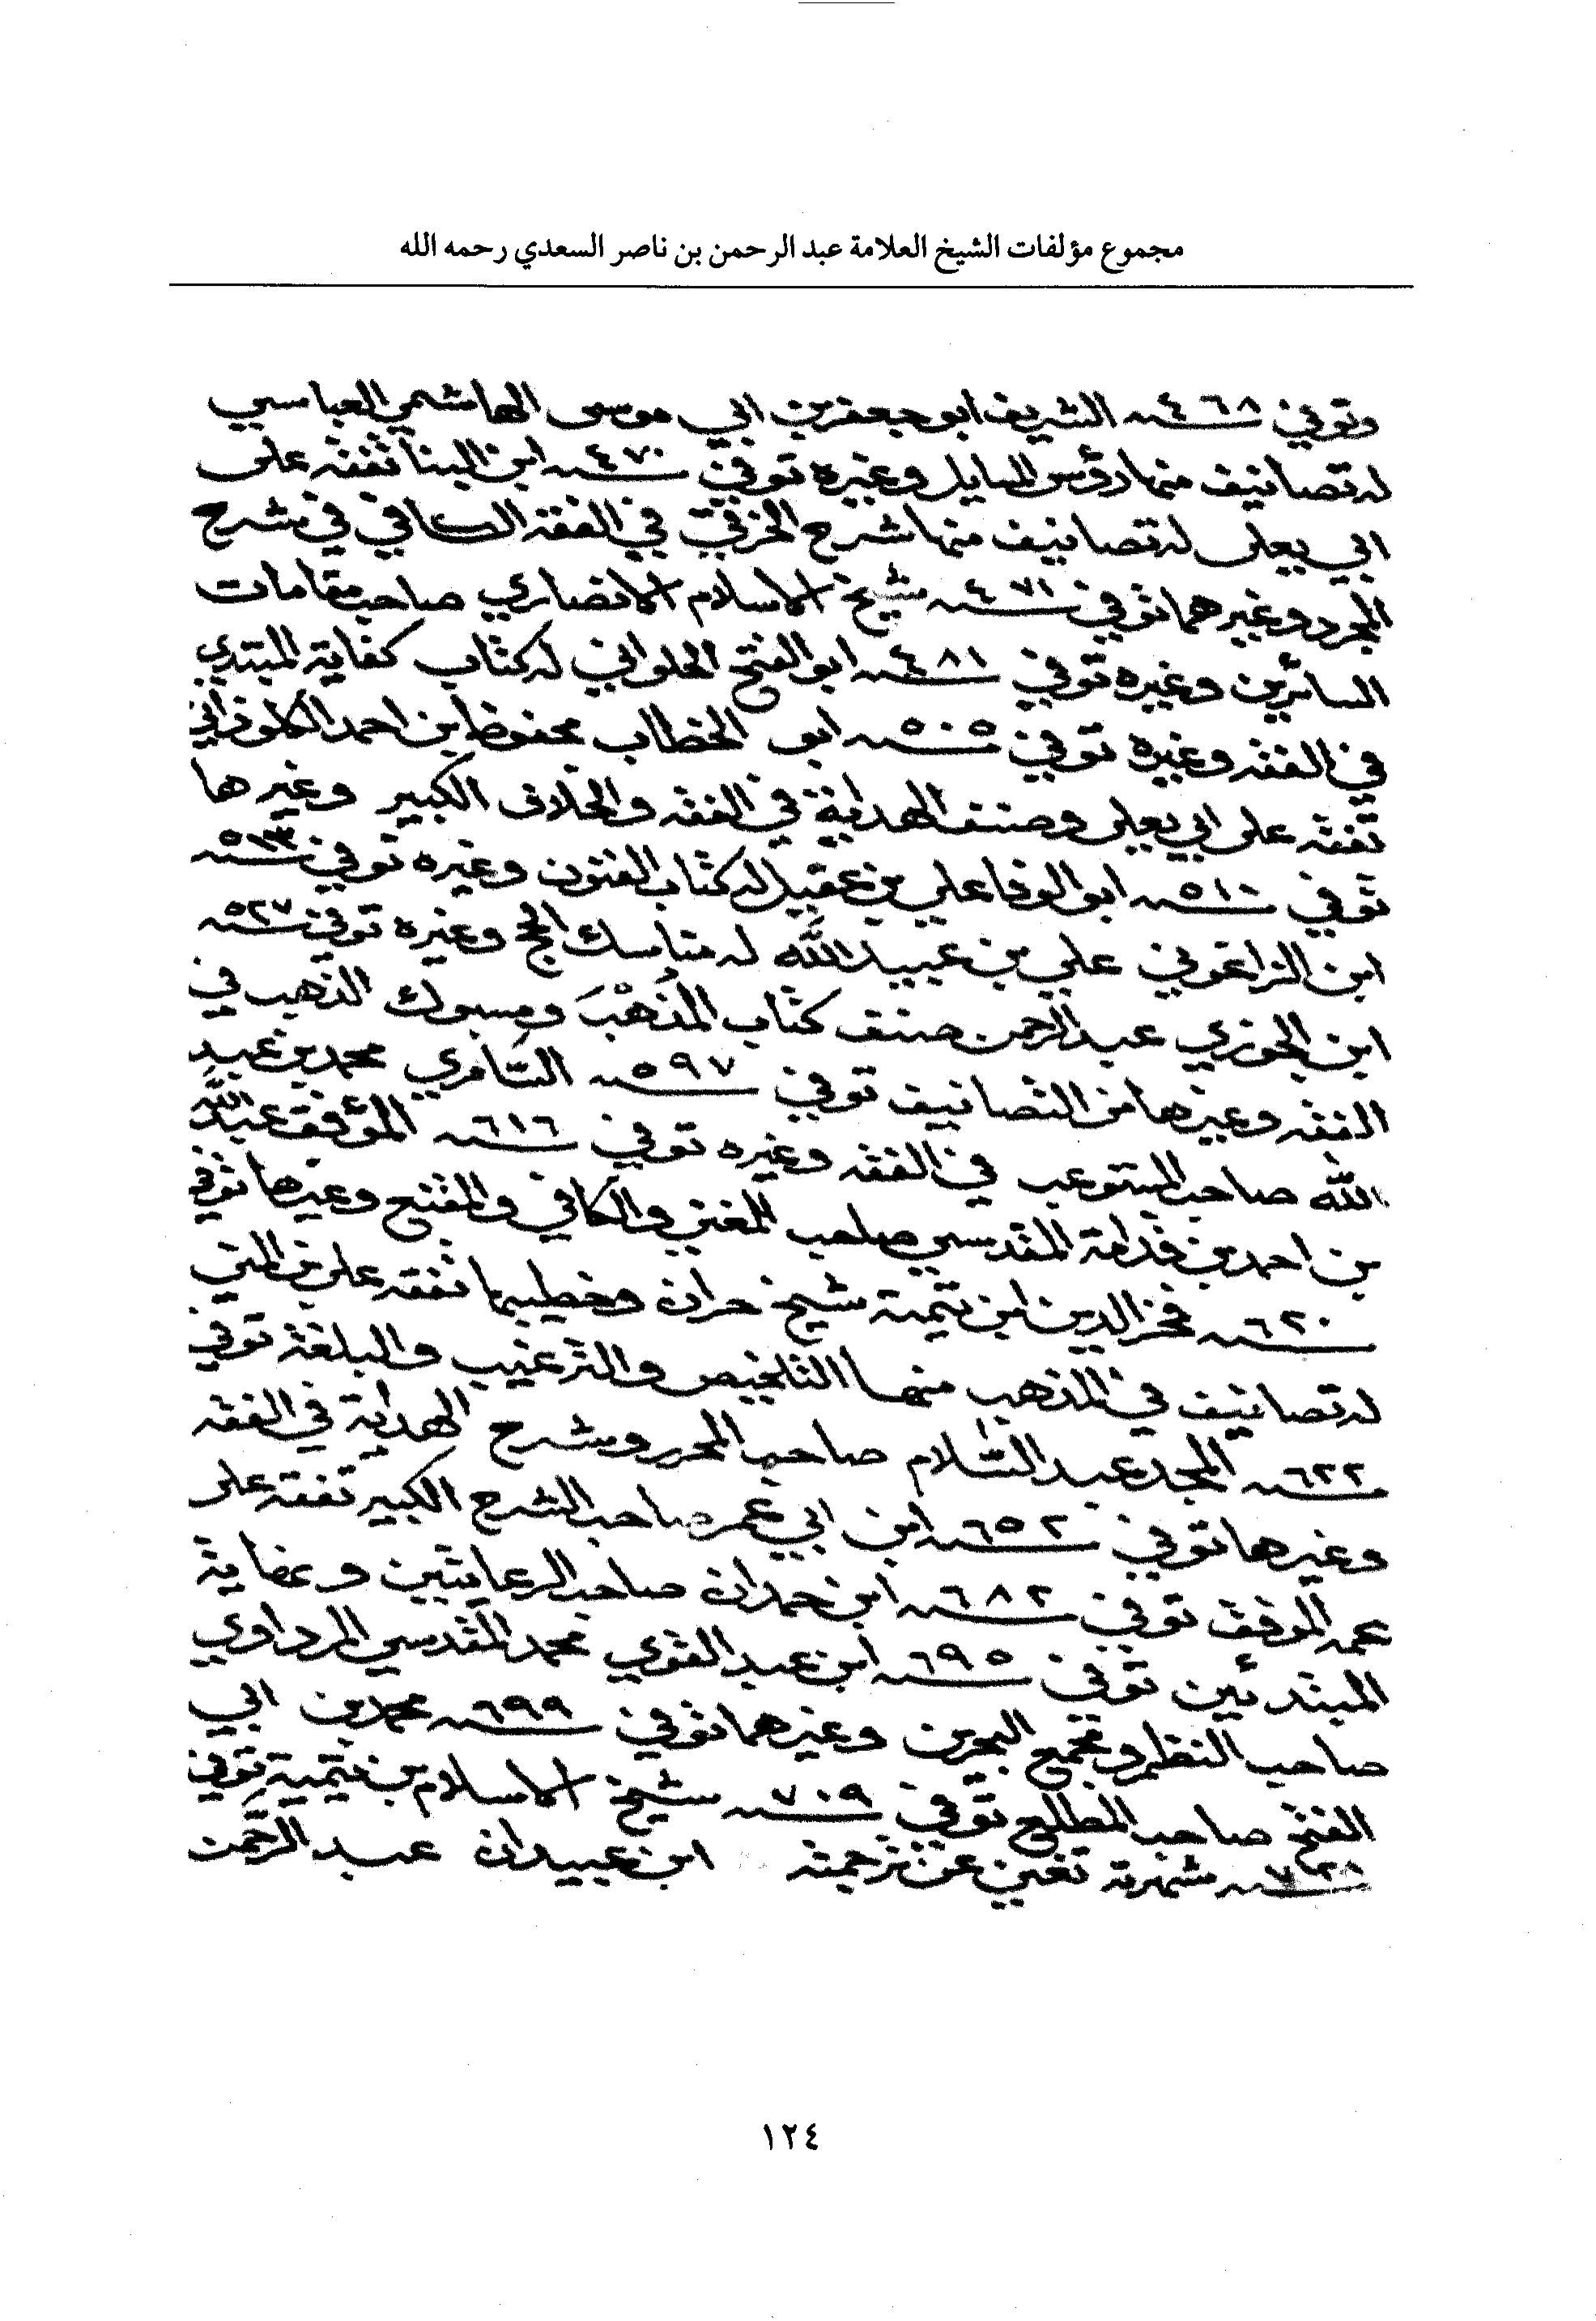 مجموع مؤلفات الشيخ العلامة عبد الرحمن بن ناصر السعدي رحمه الله
وتوفي ٤٦٨سنه الشريف ابو جعفر بن ابي موسى الهاشمي العباسي
له تصانيف منها رؤس المسايل وغيره توفي ٤٧٠سنه ابن البنا تفقه على
ابي يعلى له تصانيف منها شرح الخرقي في الفقه الكافي في شرح
المجرد وغيرهما توفي ٤٧١سنه شيخ الاسلام الانصاري صاحب مقامات
السائرين وغيره توفي ٤٨١سنه ابو الفتح الحلواني له كتاب كفاية المبتدي
في الفقه وغيره توفي ٥٠٥سنه ابو الخطاب محفوظ ابن احمد الكلوذاني
تفقه على ابي يعلى وصنف الهداية في الفقه والخلاف الكبير وغيرها
توفي ٥١٠سنه ابو الوفا علي بن عقيل له كتاب الفنون وغيره توفي ٥١٣سنه
ابن الزاغوني علي بن عبيد الله له مناسك الحج وغيره توفي ٥٢٧سنه
ابن الجوزي عبد الرحمن صنف كتاب المُذْهَبَ ومسبوك الذهب في
الفقه وغيرها من التصانيف توفي ٥٩٧سنه السَّامري محمد بن عبد
الله صاحب المستوعب في الفقه وغيره توفي ٦١٦سنه المؤفق عبد الله
بن احمد بن قدامة المقدسي صاحب المغني والكافي والمقنع وغيرها توفي
٦٢٠سنه فخر الدين ابن تيمية شيخ حران وخطيبها تفقه على بن المني
له تصانيف في المذهب منها التلخيص والترغيب والبلغة توفي
٦٢٢سنه المجد عبد السَّلام صاحب المحرر وشرح الهداية في الفقه
وغيرها توفي ٦٥٢سنه ابن ابي عمر صاحب الشرح الكبير تفقه على
عمه الموفق توفي ٦٨٢سنه ابن حمدان صاحب الرعايتين و
المبتدئين توفي ٦٩٥سنه ابن عبد القوي محمد المقدسي المرداوي
صاحب النظم و مجمع البحرين وغيرهما توفي ٦٩٩سنه محمد بن ابي
الفتح صاحب المطلع توفي ٧٠٩سنه شيخ الاسلام بن تيمية توفي
٧٢٨سنه شهرته تغني عن ترجمته ابن عبيدان عبد الرَّحمن
١٢٤